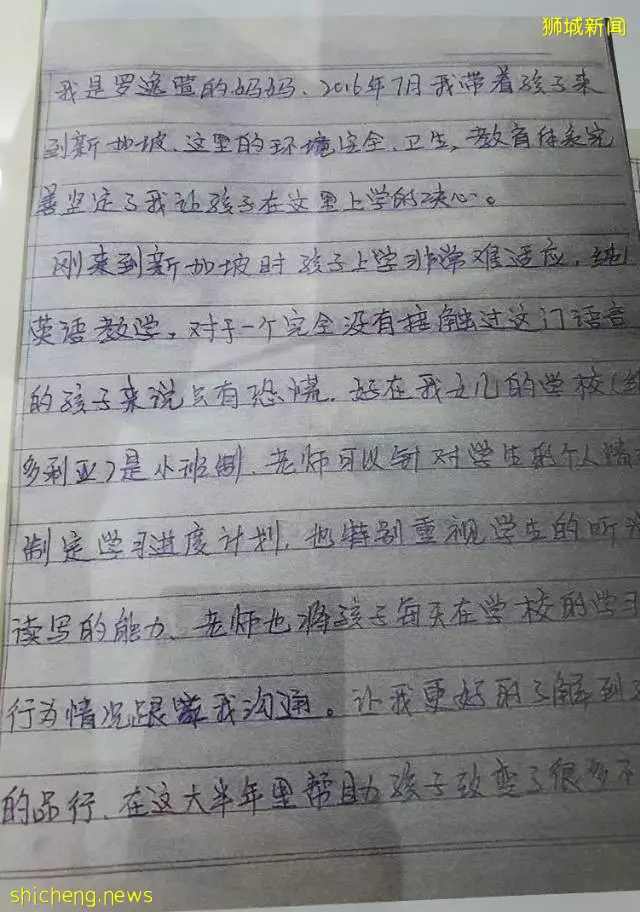 狮城新闻
我是罗逸萱的妈妈、2016年7月我带着孩子来
到新加坡、这里的环境安全、卫生,教育体系完
善坚定了我让孩子在这里上学的决心。
刚来到新加坡时孩子上学非常难适应,纯
英语教学,对于一个完全没有接触过这门语言
的孩子来说只有恐慌.好在我女儿的学校(
多利亚)是小班制、老师可以针对学生的个人情
制定学习进度计划,也特别重视学生的听
读写的能力、老师也将孩子每天在学校的学习
行为情况跟我沟通。让我更好的了解到
的品行、在这大半年里帮助孩子改变了很多不
shicheng.news